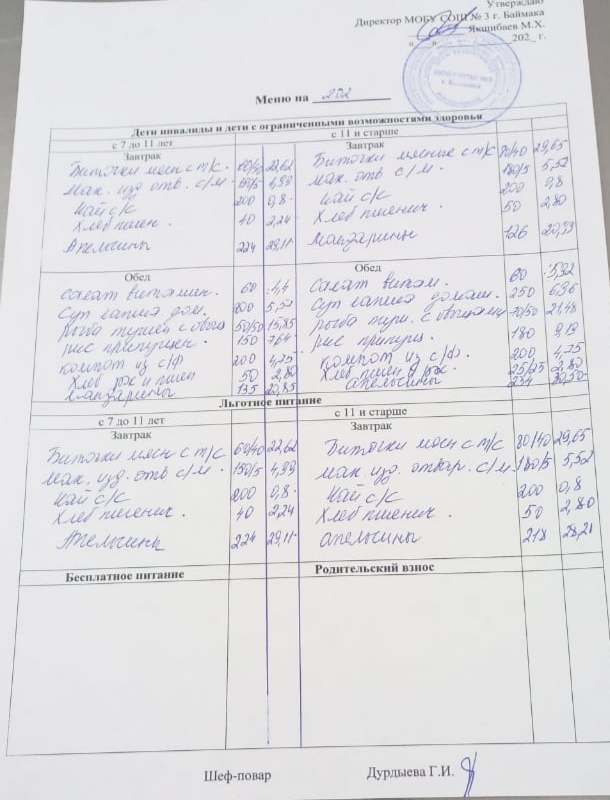 Утверждаю
Директор МОБУ СОШ № 3 г. Баймака
Якшибаев М.Х.
« » 202_ г.
Меню на 202
Дети инвалиды и дети с ограниченными возможностями здоровья
с 7 до 11 лет
с 11 и старше
Завтрак
Завтрак
Биточки мясн с т/с. 60/40 22,62
Биточки мясные с т/с 80/40 29,65
Мак. изд. отв. с/м. 150/5 4,99
Мак. отв. с/м. 180/5 5,52
Чай с/с 200 0,8
Чай с/с 200 0,8
Хлеб пшен. 40 2,24
Хлеб пшенич. 50 2,80
Апельсины 224 29,11
Мандарины 126 20,99
Обед
Обед
Салат витамин. 60 4,4
Салат витам. 60
Суп лапша дом. 200 5,52
Суп лапша домаш. 250 6,96
Рыба тушен с овощ 50/50 15,85
Рыба туш. с овощами 70/50 21,48
Рис припущен. 150 7,64
Рис припущ. 180 9,19
Компот из с/ф 200 4,75
Компот из с/ф. 200 4,75
Хлеб рж и пшен 50 2,80
Хлеб пшен и рж. 25/25 2,80
Мандарины 135 20,85
апельсины 234 30,50
Льготное питание
с 7 до 11 лет
с 11 и старше
Завтрак
Завтрак
Биточки мясн с т/с 60/40 22,62
Биточки мясн с т/с 80/40 29,65
Мак. изд. отв с/м. 150/5 4,99
Мак. изд. отвар. с/м. 180/5 5,52
Чай с/с 200 0,8
Чай с/с 200 0,8
Хлеб пшенич. 40 2,24
Хлеб пшенич. 50 2,80
Апельсины 224 29,11
апельсины 218 28,21
Бесплатное питание
Родительский взнос
Шеф-повар Дурдыева Г.И.